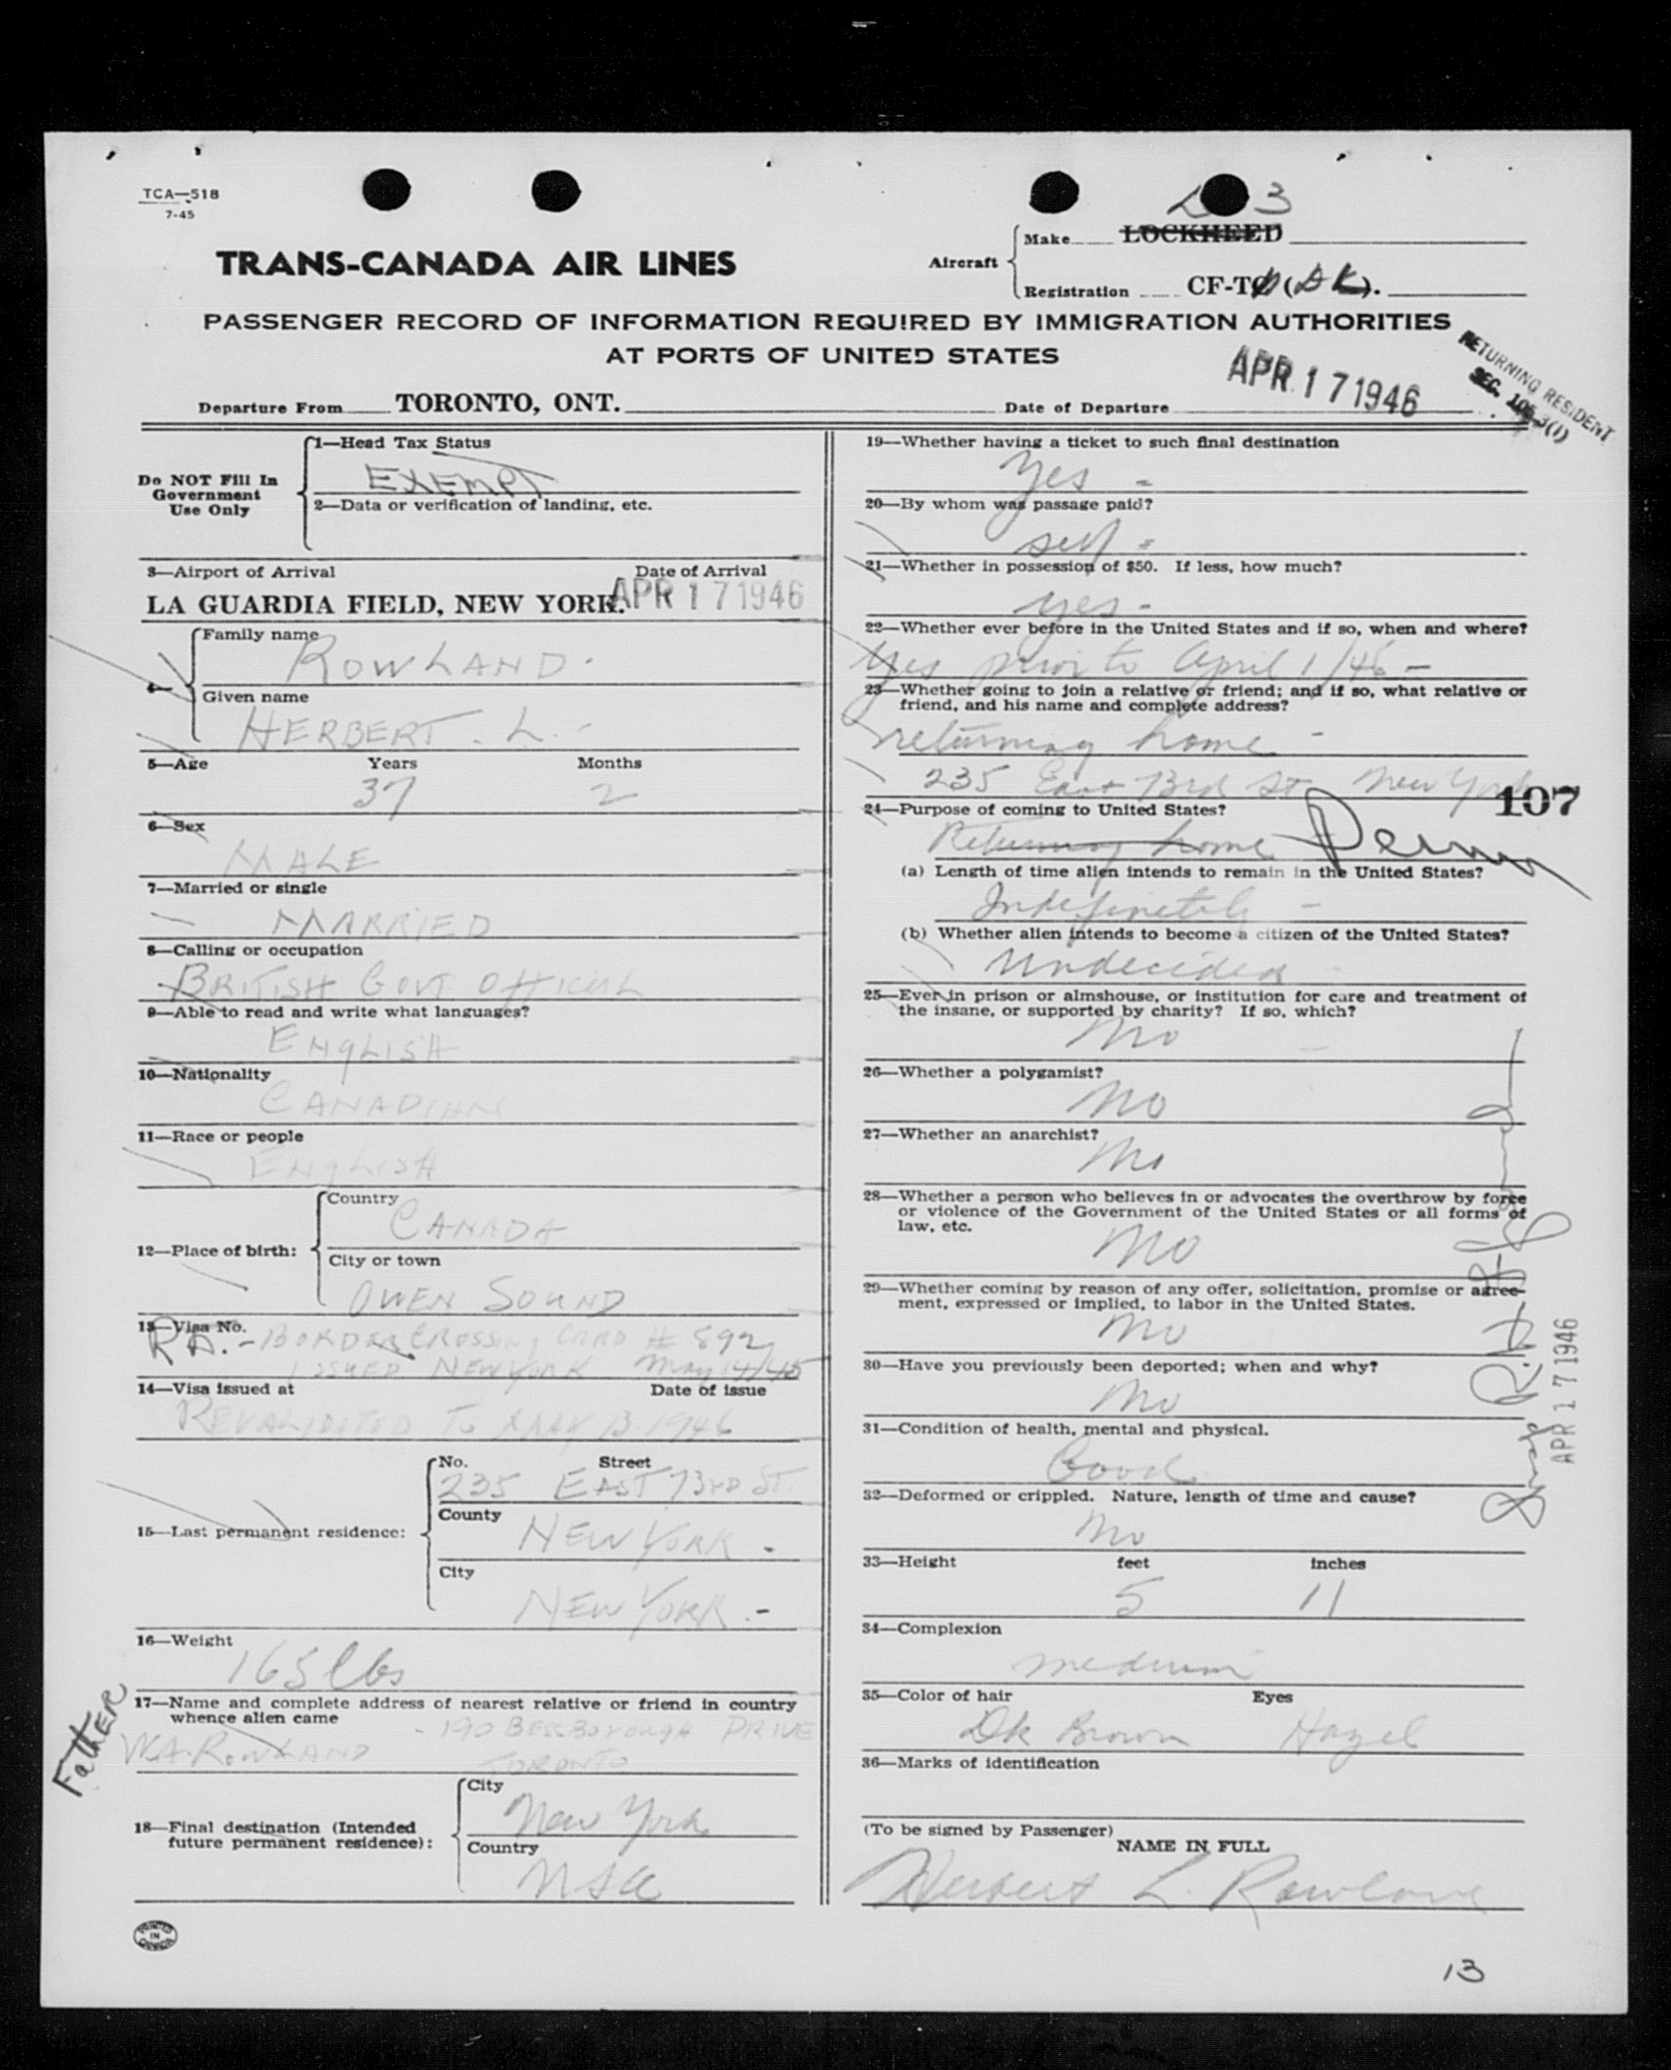 TCA—518
7-45
D 3
Aircraft
Make LOCKHEED
TRANS-CANADA AIR LINES
Registration CF-T (DK).
PASSENGER RECORD OF INFORMATION REQUIRED BY IMMIGRATION AUTHORITIES
AT PORTS OF UNITED STATES
RETURNING RESIDENT
SEC. 3(1)
Departure From TORONTO, ONT. Date of Departure APR 17 1946
Do NOT Fill In
Government
Use Only
1—Head Tax Status
EXEMPT
2—Data or verification of landing, etc.
3—Airport of Arrival Date of Arrival
LA GUARDIA FIELD, NEW YORK. APR 17 1946
4—
Family name
ROWLAND.
Given name
HERBERT. L. -
5—Age Years Months
37 2
6—Sex
MALE
7—Married or single
MARRIED
8—Calling or occupation
BRITISH GOVT OFFICIAL
9—Able to read and write what languages?
ENGLISH
10—Nationality
CANADIAN
11—Race or people
ENGLISH
12—Place of birth:
Country
CANADA
City or town
OWEN SOUND
13—Visa No.
- BORDER CROSSING CARD # 892
ISSUED NEW YORK May 14/45
14—Visa issued at Date of issue
REVALIDATED TO MAY 13. 1946
15—Last permanent residence:
No. Street
235 EAST 73RD ST.
County
NEW YORK -
City
NEW YORK. -
16—Weight
165 lbs
17—Name and complete address of nearest relative or friend in country
whence alien came
Father
W.A. ROWLAND - 190 BESSBOROUGH DRIVE
TORONTO
18—Final destination (Intended
future permanent residence):
City
New York
Country
USA
PRINTED
IN
CANADA
19—Whether having a ticket to such final destination
Yes -
20—By whom was passage paid?
self -
21—Whether in possession of $50. If less, how much?
yes -
22—Whether ever before in the United States and if so, when and where?
Yes prior to April 1/46 -
23—Whether going to join a relative or friend; and if so, what relative or
friend, and his name and complete address?
returning home -
235 East 73rd St New York
107
24—Purpose of coming to United States?
Returning home
(a) Length of time alien intends to remain in the United States?
Indefinitely -
(b) Whether alien intends to become a citizen of the United States?
Undecided
25—Ever in prison or almshouse, or institution for care and treatment of
the insane, or supported by charity? If so, which?
No
26—Whether a polygamist?
No
27—Whether an anarchist?
No
28—Whether a person who believes in or advocates the overthrow by force
or violence of the Government of the United States or all forms of
law, etc.
No
29—Whether coming by reason of any offer, solicitation, promise or agree-
ment, expressed or implied, to labor in the United States.
No
30—Have you previously been deported; when and why?
No
APR 17 1946
31—Condition of health, mental and physical.
Good
32—Deformed or crippled. Nature, length of time and cause?
No
33—Height feet inches
5 11
34—Complexion
medium
35—Color of hair Eyes
Dk Brown Hazel
36—Marks of identification
(To be signed by Passenger)
NAME IN FULL
Herbert L. Rowland
13